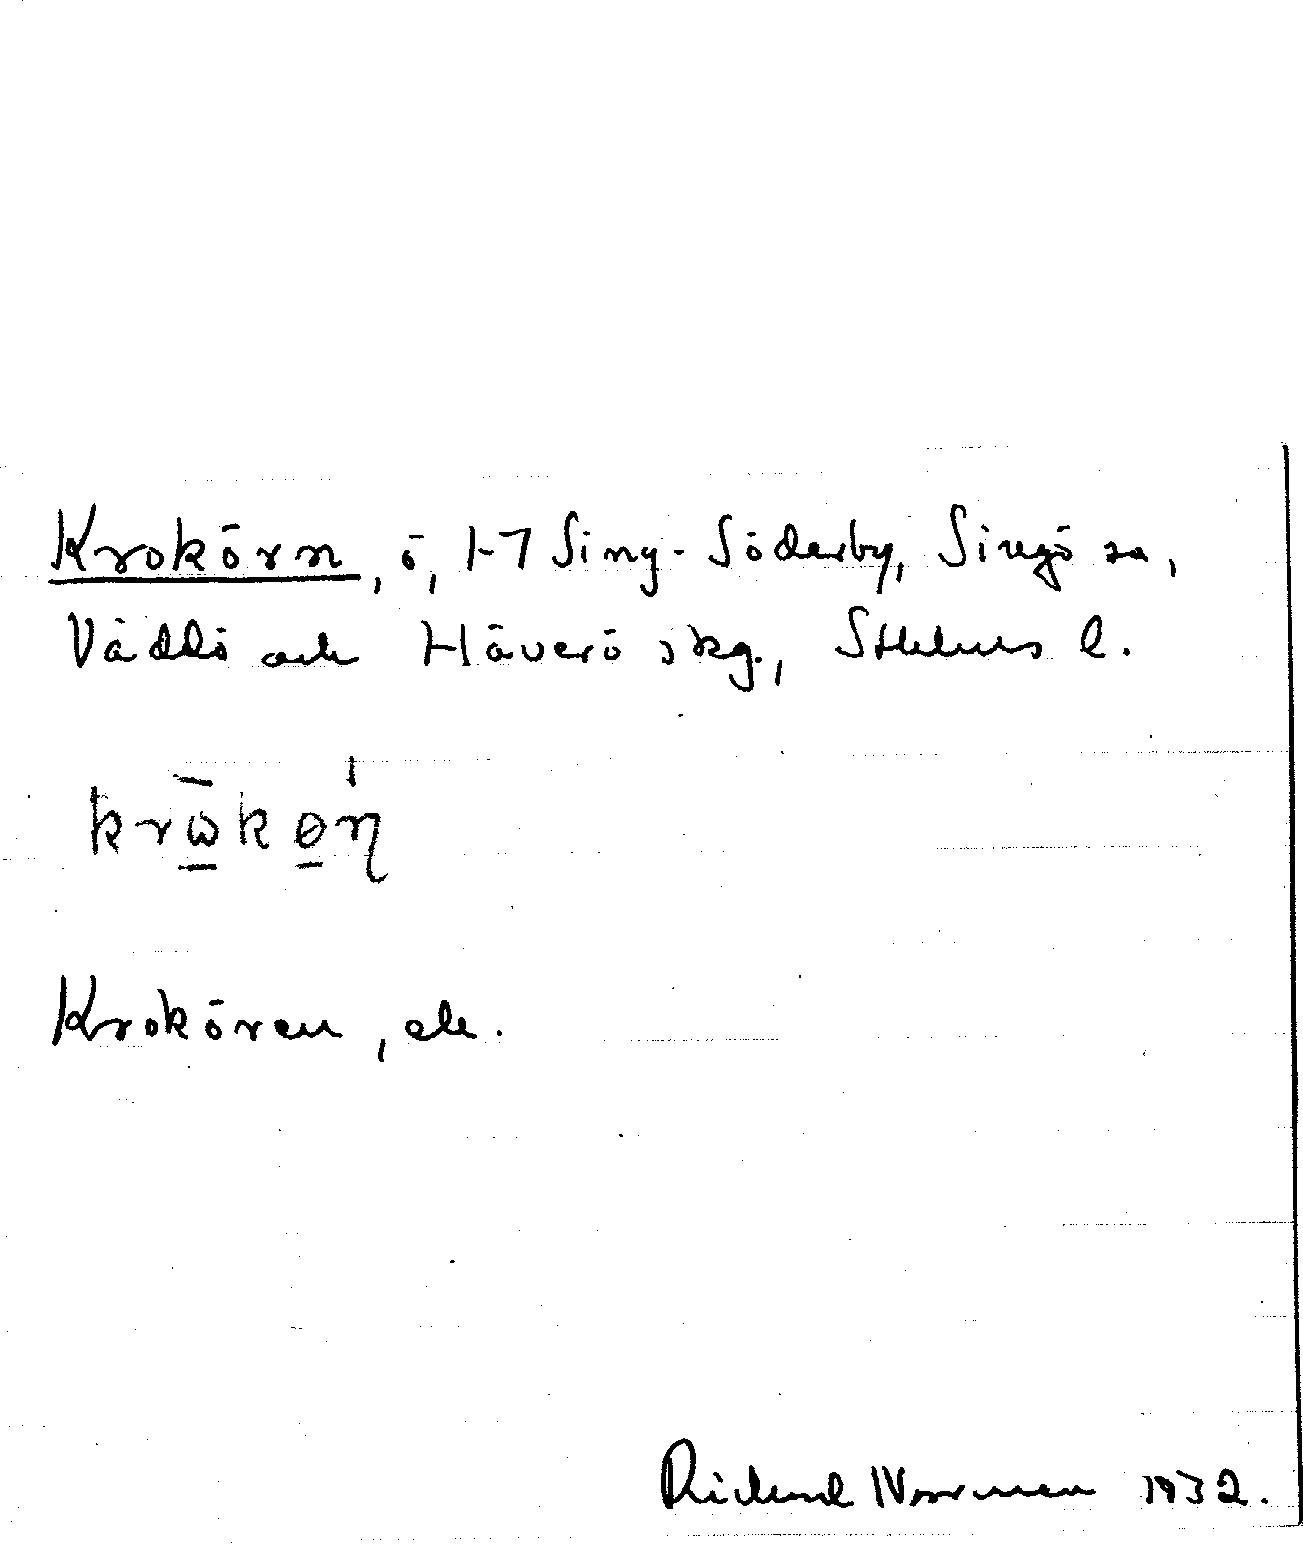 Krokörn, ö, 1-7 Sing-Söderby, Singö sn,
Väddö och Häverö skg., Sthlms l.
krω̄køń̥
Krokören, ek.
Richard Norrman 1932.